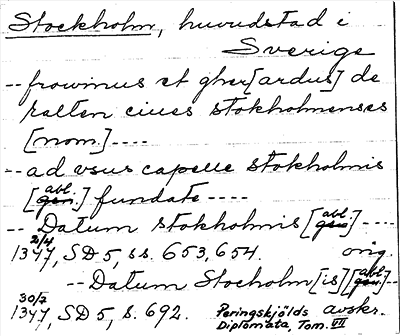 Stockholm, huvudstad i
Sverige
-- frowinus et gher[ardus] de
ralten ciues stokholmenses
[nom.] ----
-- ad vsus capelle stokholmis
[gen. abl.] fundate ----
-- Datum stokholmis [gen abl.] ----
1347 2/4, SD 5, ss. 653, 654. orig.
-- Datum Stocholm[is] [gen. abl.] --
1347 30/7, SD 5, s. 692. Peringskjölds Diplomata, Tom. VII avskr.